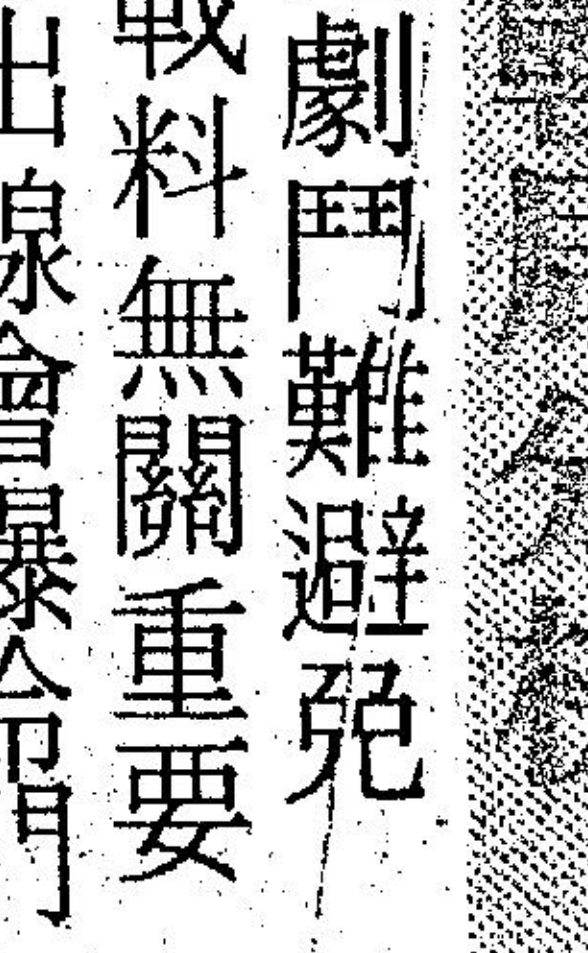 劇鬥難避免
戰料無關重要
出線會爆冷門